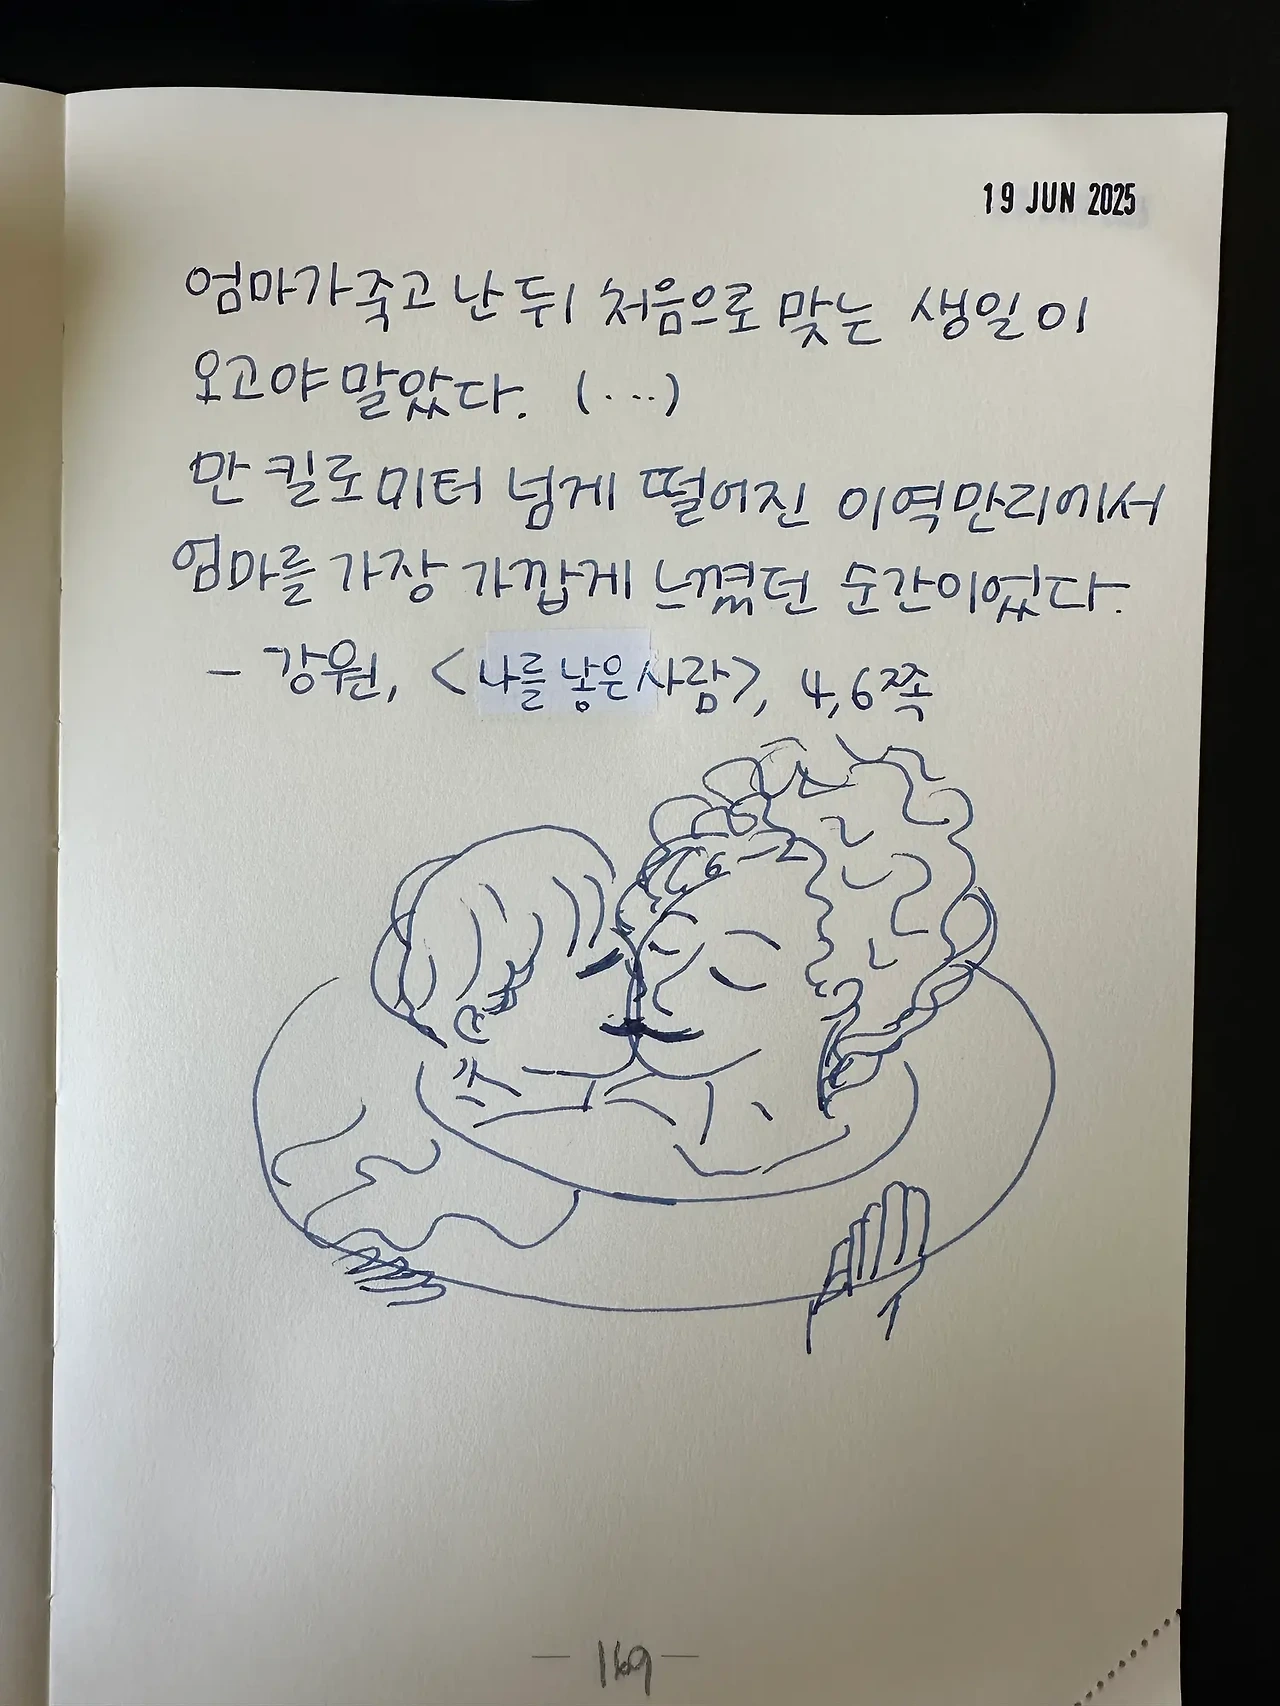 19 JUN 2025
엄마가 죽고 난 뒤 처음으로 맞는 생일이
오고야 말았다. (...)
만 킬로미터 넘게 떨어진 이역만리에서
엄마를 가장 가깝게 느꼈던 순간이었다.
- 강원, <나를 낳은 사람>, 4,6쪽
- 169 -